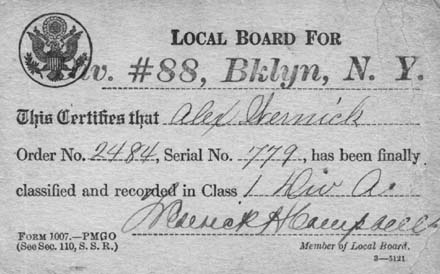 LOCAL BOARD FOR
Div. #88, Bklyn, N. Y.
This Certifies that Alex Wernick
Order No. 2484, Serial No. 779, has been finally
classified and recorded in Class 1 Div A
H Campbell
FORM 1007.—PMGO
(See Sec. 110, S. S. R.)
Member of Local Board.
3—5121